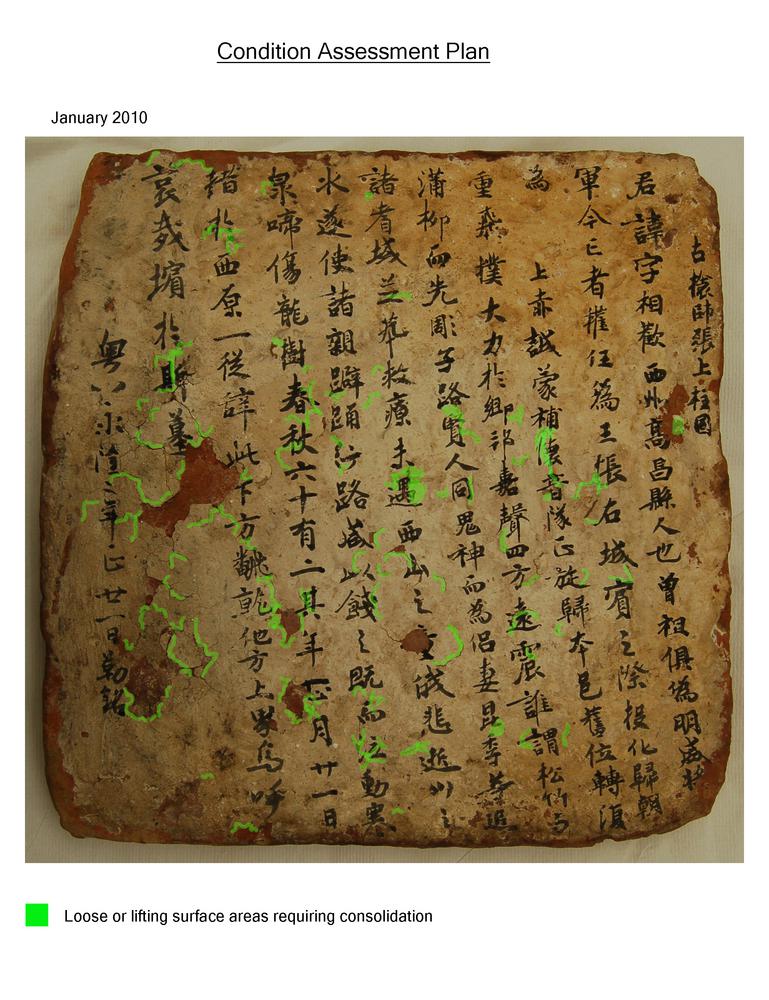 張上柱國
君諱字相歡西州高昌縣人也曾祖俱為明威將
軍今亡者權任為王帳右城賓之際投化歸朝
為上赤誠蒙補懷音隊正旋歸本邑舊位轉復
重飛撲大力於鄉邦嘉聲四方遠震誰謂松竹与
蒲柳而先彫子路賢人同鬼神而為侶妻昆季等追
諸耆域並救療未遇西山之童俄悲逝川之
水遂使諸親躃踊行路咸以餞之既而泣動寒
泉啼傷龍樹春秋六十有二其年正月廿一日
措於西原一從辭此下方翻他方上界烏呼
哀哉殯於斯墓
粤以永隆二年正月廿一日勒銘
Condition Assessment Plan
January 2010
Loose or lifting surface areas requiring consolidation